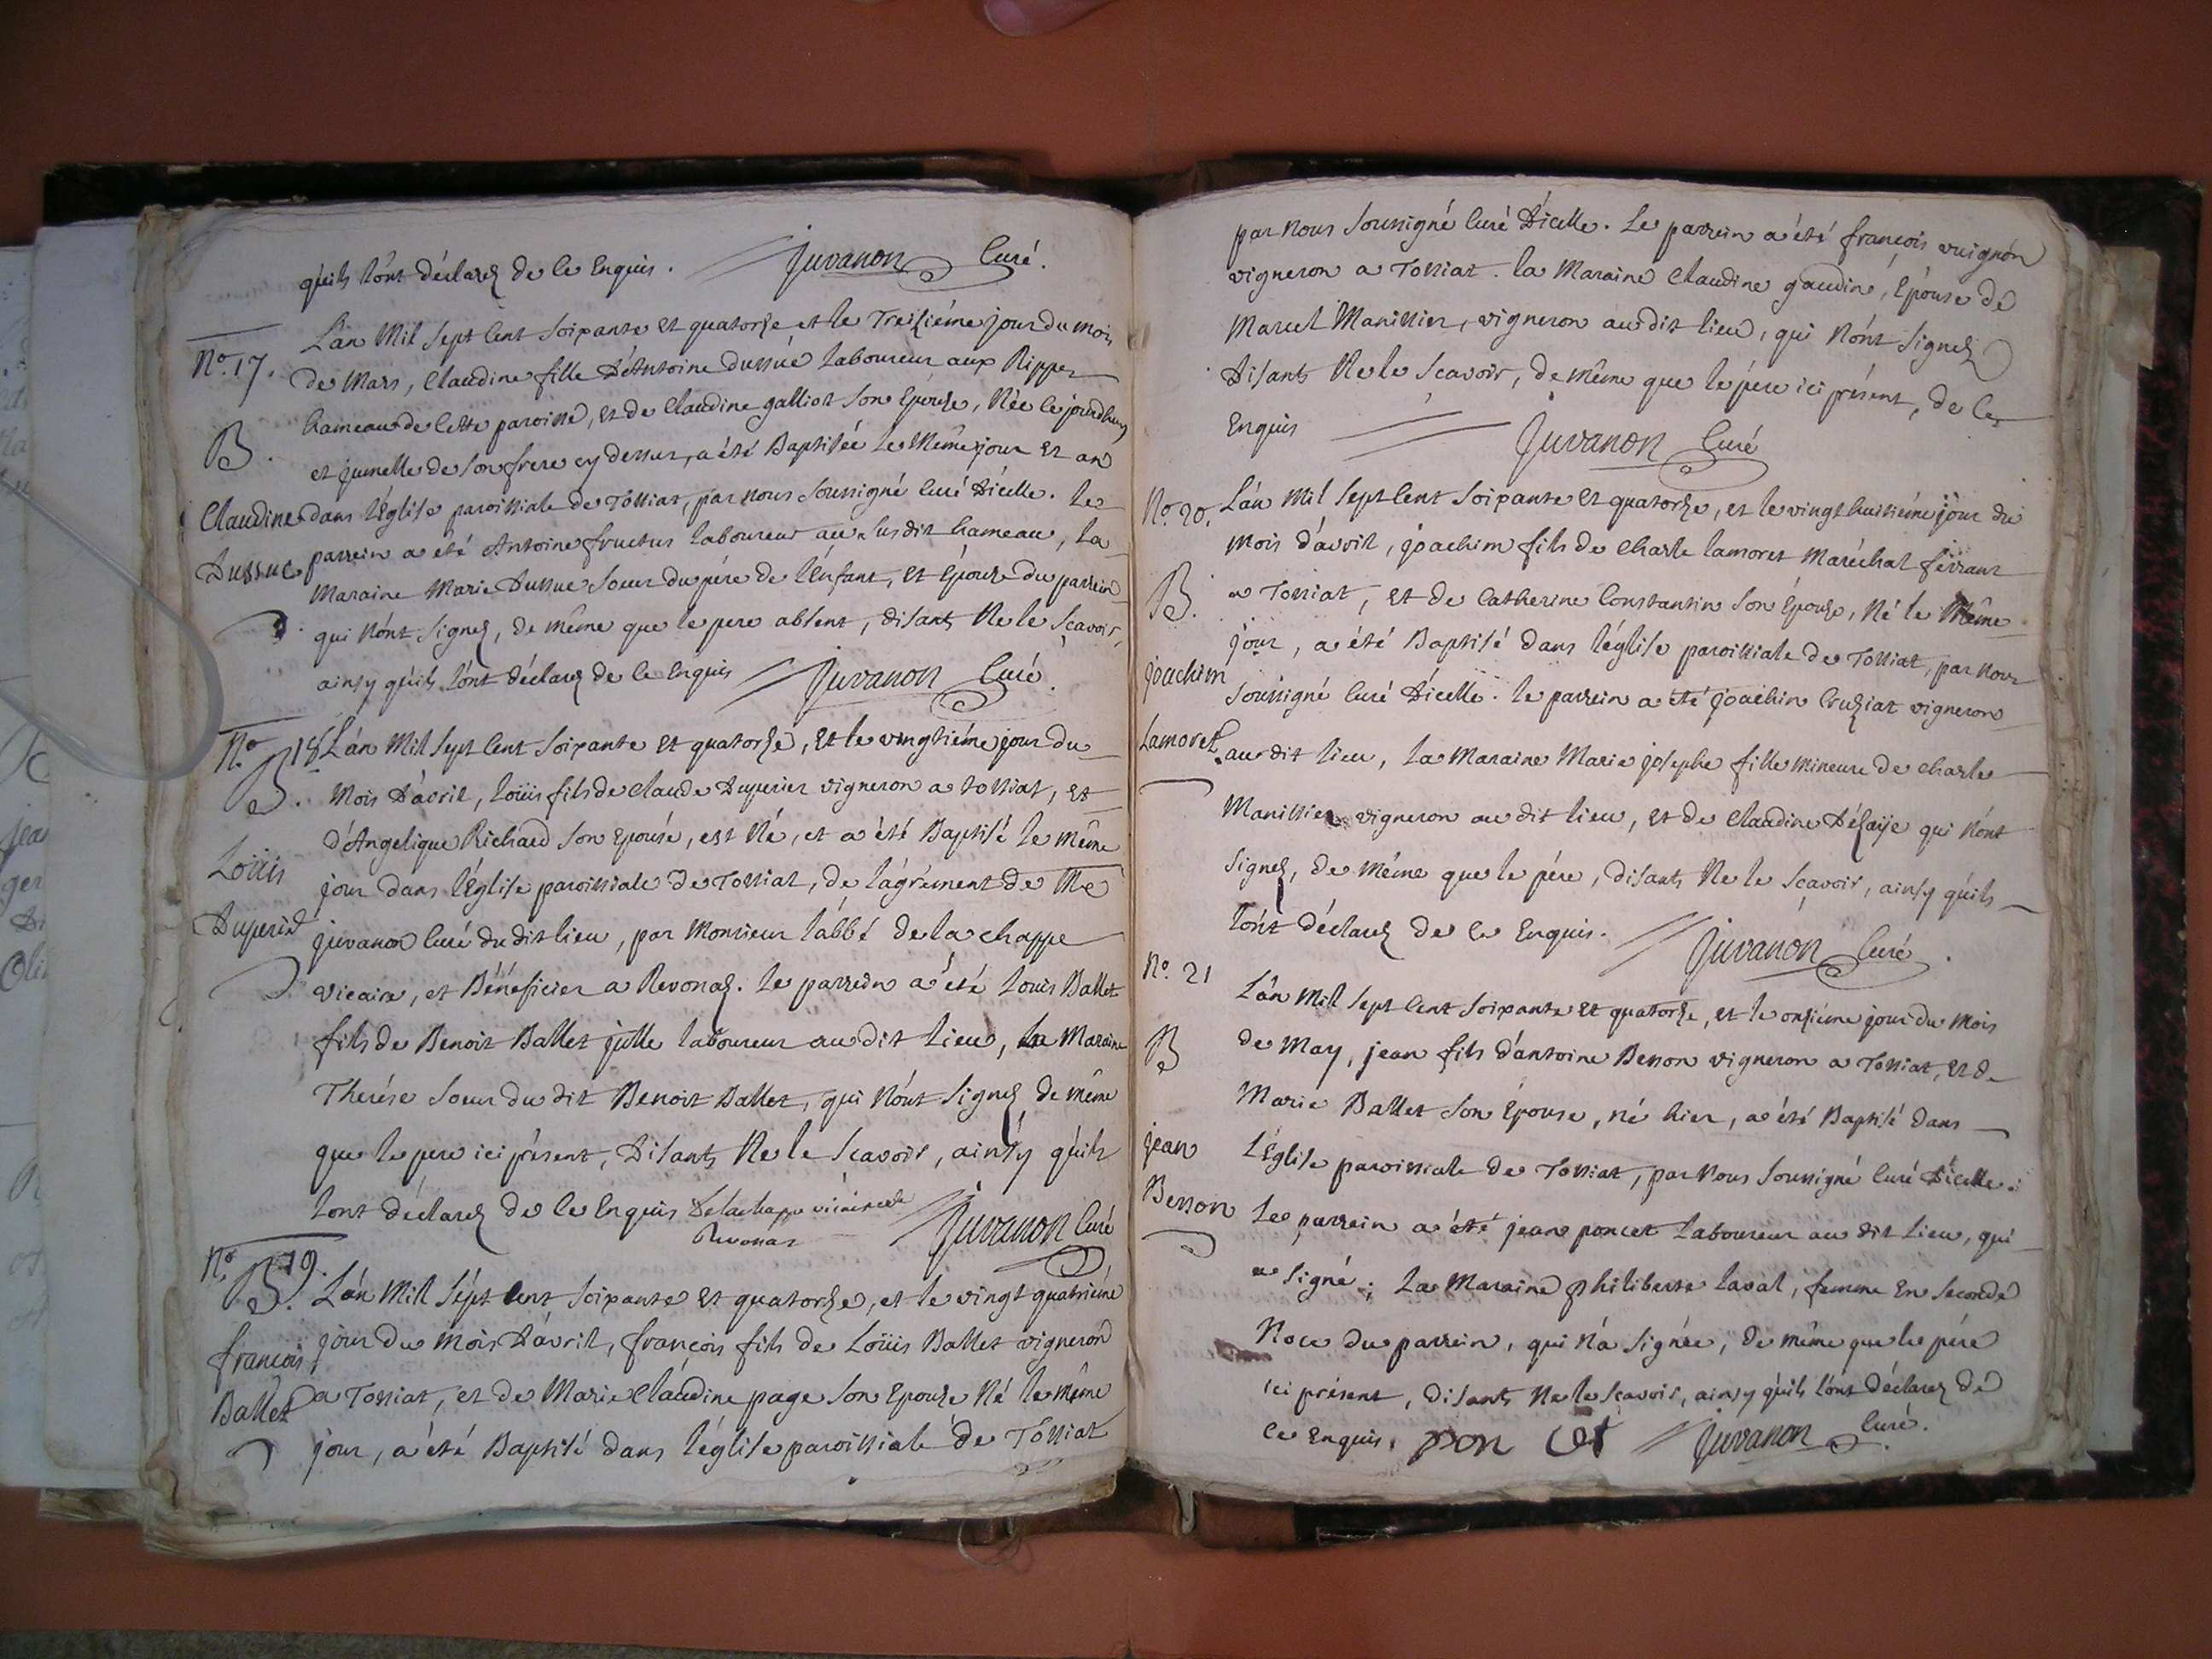 qu'ils l'ont déclarez de ce Enquis. Juvanon Curé.
N.o 17. L'an Mil Sept Cent Soixante et quatorze et le Treizième jour du mois
de Mars, Claudine fille d'Antoine dussuc Laboureur aux Rippes
B. hameau de Cette paroisse, et de Claudine galliot Son Epouze, Née le jourdhuy
et jumelle de Son frere cy dessus, a été Baptisée le Même jour et an
Claudine dans l'Eglise paroissiale de Tossiat, par nous Soussigné Curé d'icelle. Le
Dussuc parrein a été Antoine fructus laboureur au Susdit hameau, La
Maraine Marie Dussuc Soeur du père de l'Enfant, et Epouze du parrein
qui n'ont Signez, de même que le pere absent, disants Ne le Scavoir,
ainsy qu'ils l'ont déclarez de ce Enquis Juvanon Curé.
N.o 18 L'an Mil Sept Cent Soixante et quatorze, et le vingtième jour du
B. Mois d'avril, Loüis fils de Claude Duperier vigneron a tossiat, et
d'Angelique Richard Son Epouse, est Né, et a été Baptisé le même
Loüis jour dans l'Eglise paroissiale de Tossiat, de l'agrément de Me
Duperier juvanon Curé du dit lieu, par Monsieur l'abbé de la chappe
vicaire, et Bénéficier a Revonaz. Le parrein a été Louis Ballet
fils de Benoit Ballet julle laboureur au dit Lieu, La Maraine
Therése Soeur du dit Benoit Ballet, qui n'ont Signez de même
que le pere ici présent, disants Ne le Scavoir, ainsy qu'ils
l'ont déclarez de Ce Enquis Delachappe vicaire de
Revonas Juvanon Curé
N.o 19.
B. L'an Mil Sépt Cent Soixante et quatorze, et le vingt quatrième
françois jour du Mois d'avril, françois fils de Loüis Ballet vigneron
Ballet a Tossiat, et de Marie Claudine page Son Epouze Né le même
jour, a été Baptisé dans l'église paroissiale de Tossiat
par Nous Soussigné Curé d'icelle. Le parrein a été françois vuignon
vigneron a Tossiat. la Maraine Claudine gaudin, Epouse de
Marcel Manissier, vigneron audit lieu, qui N'ont Signez
disants Ne le Scavoir, de même que le père ici présent, de Ce
Enquis Juvanon Curé
N.o 20. L'an Mil Sept Cent Soixante et quatorze, et le vingt huitième jour du
mois d'avril, joachim fils de Charle lamoret Maréchal ferrant
B. a Tossiat, et de Catherine Constantin Son Epouze, Né le Même
jour, a été Baptisé dans l'église paroissiale de Tossiat, par Nous
joachim Soussigné Curé d'icelle. le parrein a été joachin Cruziat vigneron
Lamoret. au dit lieu, La Maraine Marie josephe fille mineure de Charle
Manissier vigneron au dit lieu, et de Claudine Dézaije qui N'ont
Signez, de Même que le pére, disants Ne le Sçavoir, ainsy qu'ils
l'ont déclarez de Ce Enquis. Juvanon Curé.
N.o 21 L'an Mil Sept Cent Soixante et quatorze, et le onzième jour du Mois
B de May, jean fils d'antoine Besson vigneron a Tossiat, et de
Marie Ballet Son Epouse, né hier, a été Baptisé dans
jean L'Eglise paroissiale de Tossiat, par Nous Soussigné Curé d'icelle.
Besson Le parrein a été jean poncet Laboureur au dit Lieu, qui
a Signé; La Maraine philiberte laval, femme En Seconde
Noce du parrein, qui N'a Signée, de même que le pére
ici présent, disants Ne le Scavoir, ainsy qu'ils l'ont déclarez de
Ce Enquis. pon cet Juvanon Curé.